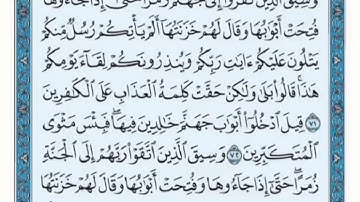 وَسِيقَ ٱلَّذِينَ كَفَرُوٓا۟ إِلَىٰ جَهَنَّمَ زُمَرًا ۖ حَتَّىٰٓ إِذَا جَآءُوهَا
فُتِحَتْ أَبْوَٰبُهَا وَقَالَ لَهُمْ خَزَنَتُهَآ أَلَمْ يَأْتِكُمْ رُسُلٌ مِّنكُمْ
يَتْلُونَ عَلَيْكُمْ ءَايَٰتِ رَبِّكُمْ وَيُنذِرُونَكُمْ لِقَآءَ يَوْمِكُمْ
هَٰذَا ۚ قَالُوا۟ بَلَىٰ وَلَٰكِنْ حَقَّتْ كَلِمَةُ ٱلْعَذَابِ عَلَى ٱلْكَٰفِرِينَ
٧١ قِيلَ ٱدْخُلُوٓا۟ أَبْوَٰبَ جَهَنَّمَ خَٰلِدِينَ فِيهَا ۖ فَبِئْسَ مَثْوَى
ٱلْمُتَكَبِّرِينَ ٧٢ وَسِيقَ ٱلَّذِينَ ٱتَّقَوْا۟ رَبَّهُمْ إِلَى ٱلْجَنَّةِ
زُمَرًا ۖ حَتَّىٰٓ إِذَا جَآءُوهَا وَفُتِحَتْ أَبْوَٰبُهَا وَقَالَ لَهُمْ خَزَنَتُهَا